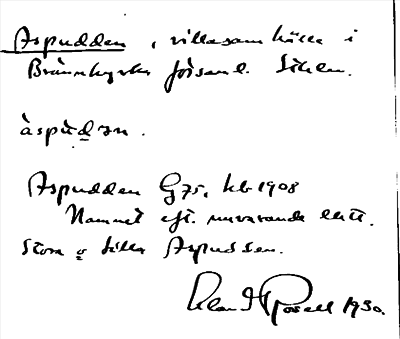 Aspudden, villasamhälle i
Brännkyrka församl. Sthlm.
àspùd̲ən.
Aspudden G75, kb 1908
Namnet eft. nuvarande lätt.
Stora o. Lilla Aspudden.
Rosell 1930.